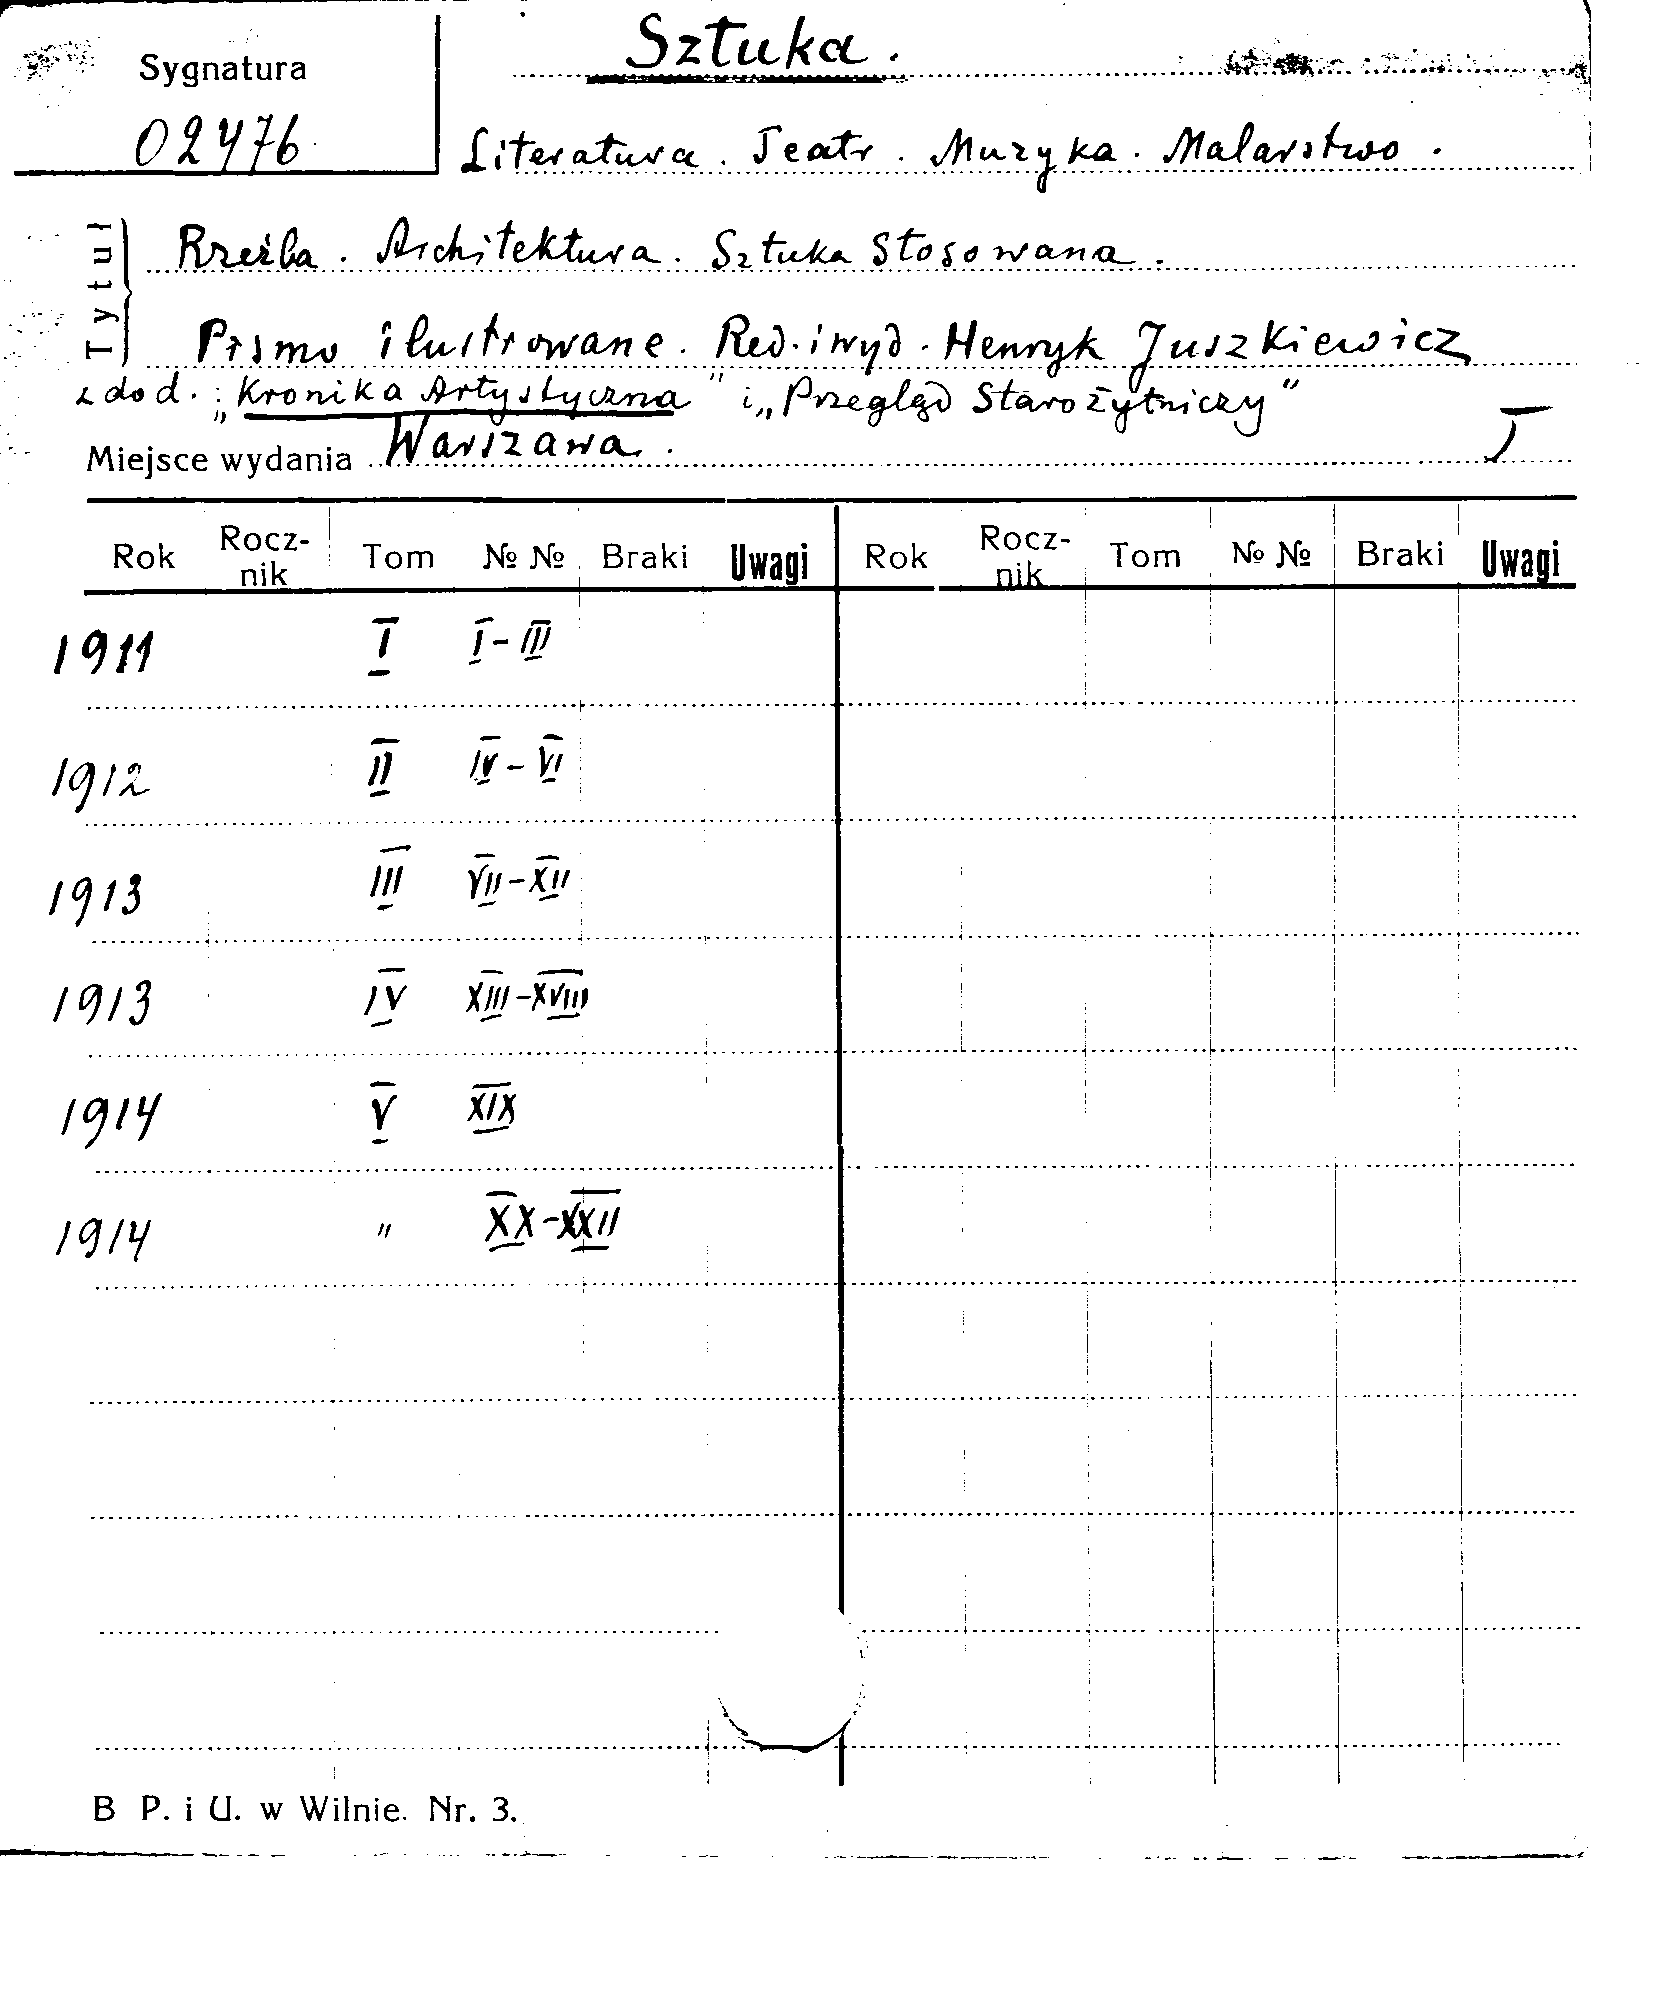 Sztuka.
Sygnatura
02476
Literatura. Teatr. Muzyka. Malarstwo.
Tytuł
Rzeźba. Architektura. Sztuka Stosowana.
Pismo ilustrowane. Red. i wyd. Henryk Juszkiewicz
z dod. : „Kronika Artystyczna” i „Przegląd Starożytniczy”
Miejsce wydania Warszawa. I
Rok Rocz- Tom № № Braki Uwagi Rok Rocz- Tom № № Braki Uwagi
nik nik
1911 I I - III
1912 II IV - VI
1913 III VII - XII
1913 IV XIII - XVIII
1914 V XIX
1914 " XX - XXII
B P. i U. w Wilnie. Nr. 3.